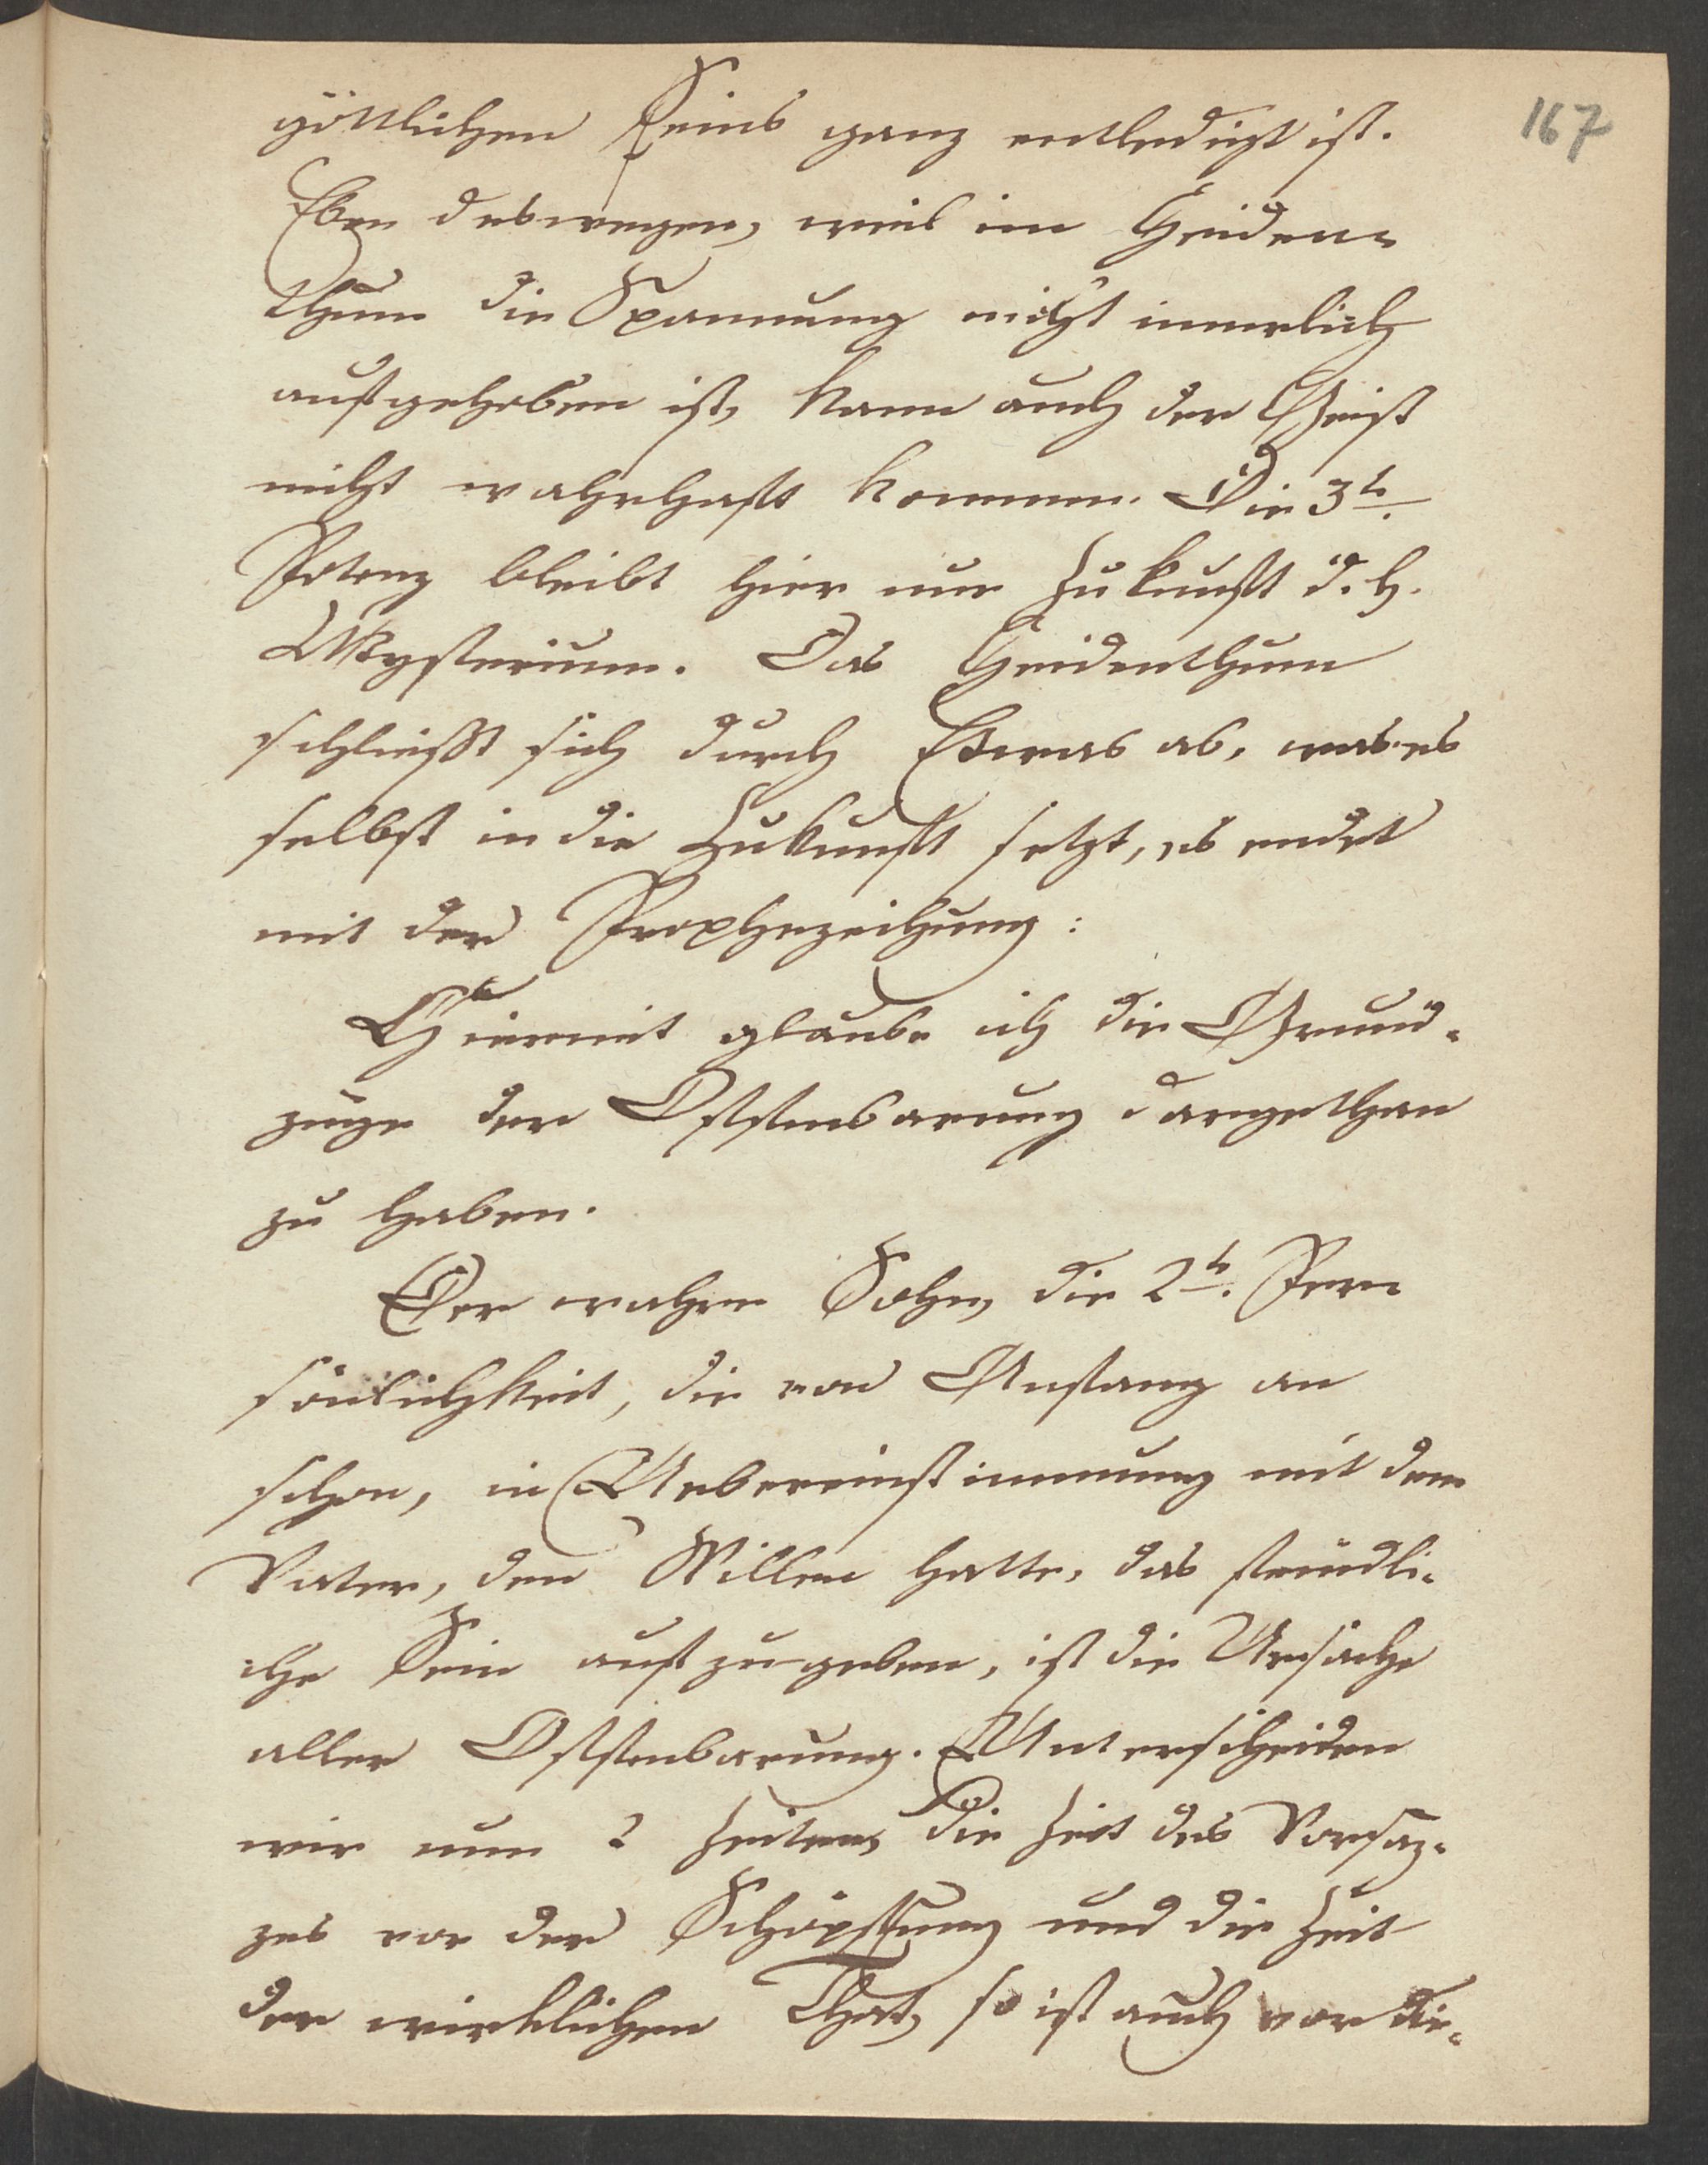 167
göttlichen Seins ganz entledigt ist.
Eben deswegen, weil im Heiden-
thum die Spannung nicht innerlich
aufgehoben ist, kann auch der Geist
nicht wahrhaft kommen. Die 3te.
Potenz bleibt hier nur Zukunft d. h.
Mysterium. Das Heidenthum
schließt sich durch Etwas ab, was es
selbst in die Zukunft setzt, es endet
mit der Prophezeihung:
Hiermit glaube ich die Grund-
züge der Offenbarung dargethan
zu haben.
Der wahre Sohn, die 2te. Per-
sönlichkeit, die von Anfang an
schon, in Uebereinstimmung mit dem
Vater, den Willen hatte, das feindli-
che Sein aufzugeben, ist die Ursache
aller Offenbarung. Unterscheiden
wir nun 2 Zeiten, die Zeit des Vorsaz-
zes vor der Schöpfung und die Zeit
der wirklichen That, so ist auch vor die-